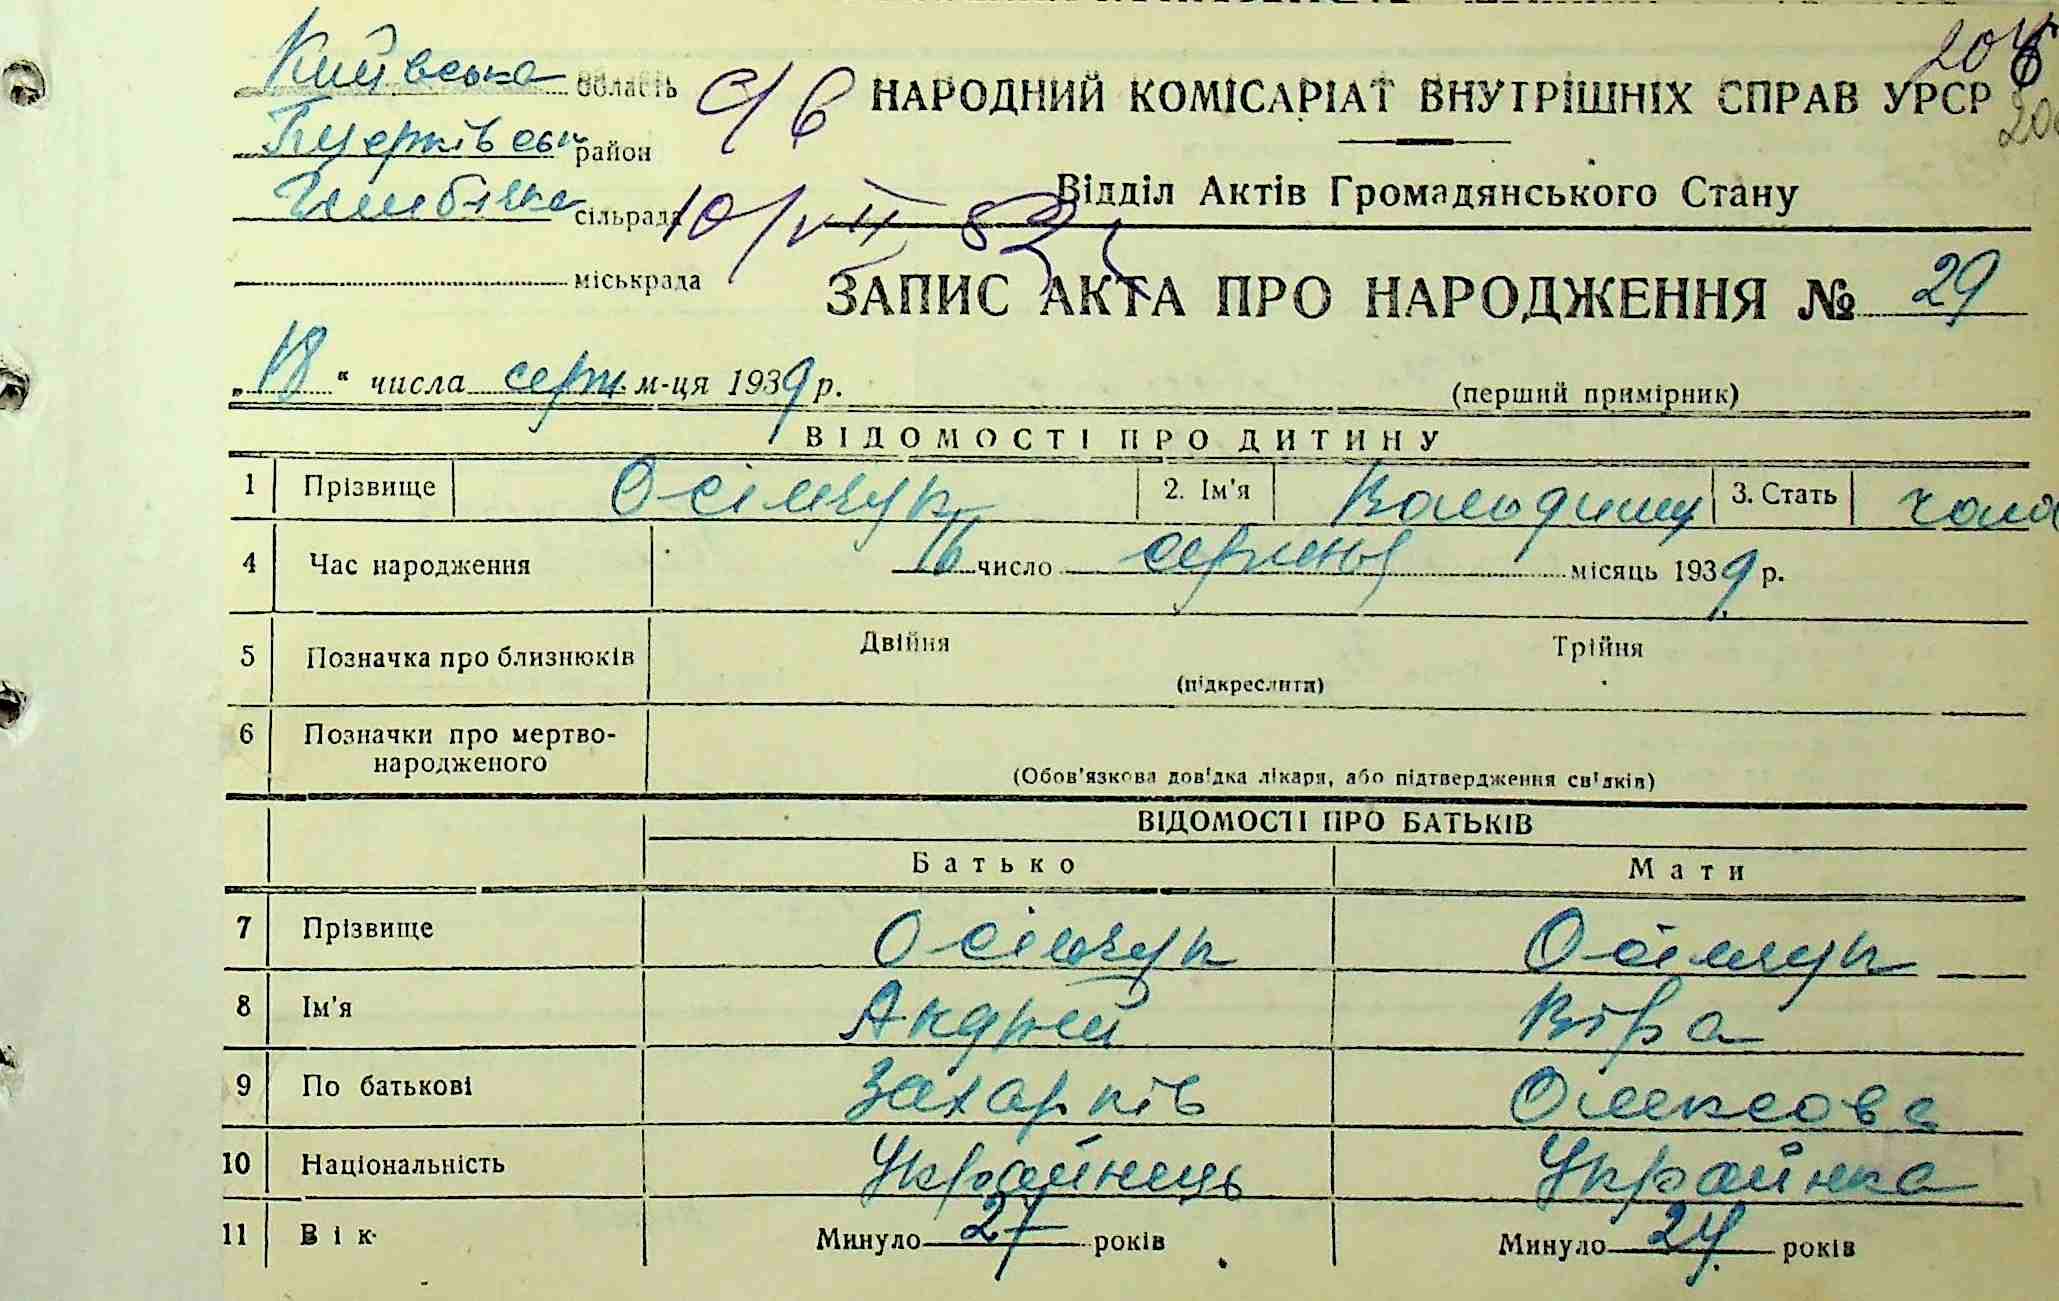 Київська область
район
сільрада
міськрада
с/в
10/VII 52
НАРОДНИЙ КОМІСАРІАТ ВНУТРІШНІХ СПРАВ УРСР
Відділ Актів Громадянського Стану
ЗАПИС АКТА ПРО НАРОДЖЕННЯ № 29
„18“ числа серп. м-ця 1939 р.
(перший примірник)
ВІДОМОСТІ ПРО ДИТИНУ
1 Прізвище Осімчук 2. Ім'я 3. Стать чолов
4 Час народження 16 число серпня місяць 1939 р.
5 Позначка про близнюків Двійня Трійня
(підкреслити)
6 Позначки про мертво-
народженого
(Обов'язкова довідка лікаря, або підтвердження свідків)
ВІДОМОСТІ ПРО БАТЬКІВ
Батько Мати
7 Прізвище Осімчук Осімчук
8 Ім'я Андрей Віра
9 По батькові Захарків Олексова
10 Національність Українець Українка
11 Вік Минуло 27 років Минуло 24 років